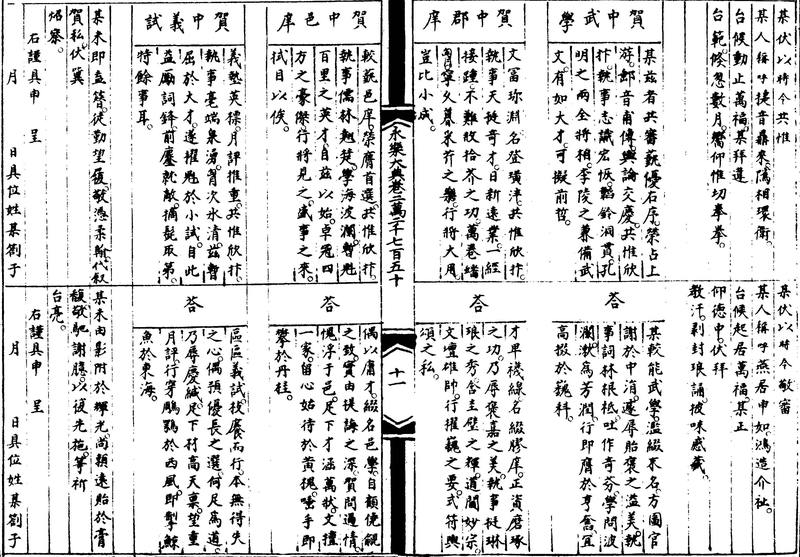 某伏以時令共惟
某人稱呼捷音鼎來陰相環衛
台候動止萬福某拜違
台範倏忽數月嚮仰惟切拳拳
賀中武學
某茲者共審藝優右庠榮占上
游郵音甫傳輿論交慶共惟欣
抃執事志識宏恢韜鈐洞貫孔
明之兩全將相李陵之兼備武
文有如大才可擬前哲
賀中郡庠
文富珎淵名登璜泮共惟欣抃
執事天挺奇才日新遠業一經
接踵不難致拾芥之功萬卷蟠
胷寧久采芹之樂行將大用
豈比小成
永樂大典卷二萬二千七百五十
十一
賀中邑庠
較藝邑庠榮膺首選共惟欣抃
執事儒林翹楚學海波瀾暫魁
百里之英才自兹以始卓冠四
方之豪傑行將見之盛事之來
拭目以俟
賀中義試
義塾英標月評推重共惟欣抃
執事毫端泉湧胷次氷清兹暫
屈於大才遂擢魁於小試自此
益勵詞鋒前鏖就敵摘髭取第
特餘事耳
某未即盍簪徒勤望履敬憑柔翰代叙
賀私伏冀
炤察
右謹具申 呈
月 日具位姓某劄子
某伏以時令敬審
某人稱呼燕居申如鴻造介祉
台候起居萬福某正
仰德中伏拜
教汗剝封琅誦披味感藏
答
某較能武學濫綴末名方圖官
謝於中涓遽辱貽褒之溢美執
事詞林根柢吐作奇芬學問波
瀾漱爲芳潤行即膺於亨奮宜
高掇於巍科
答
才卑襪線名綴膠庠正資磨琢
之功乃辱褒嘉之美執事挺琳
琅之秀含圭璧之輝道閫妙宗
文壇雄帥行擢巍之要式符輿
頌之私
答
偶以庸才綴名邑學自顧僥覦
之致實由提誨之深質問過情
愧浮于邑足下才涵萬狀文擅
一家留心姑待於黄槐唾手即
攀於丹桂
答
區區義試技癢而行本無得失
之心偶預優長之選何足爲道
乃辱慶緘足下材高天禀望重
月評行穿鵰鶚於西風即掣鯨
魚於東海
某未由影附於輝光尚賴遠貽於膏
馥敬馳謝牘以復先施筆祈
台亮
右謹具申 呈
月 日具位姓某劄子